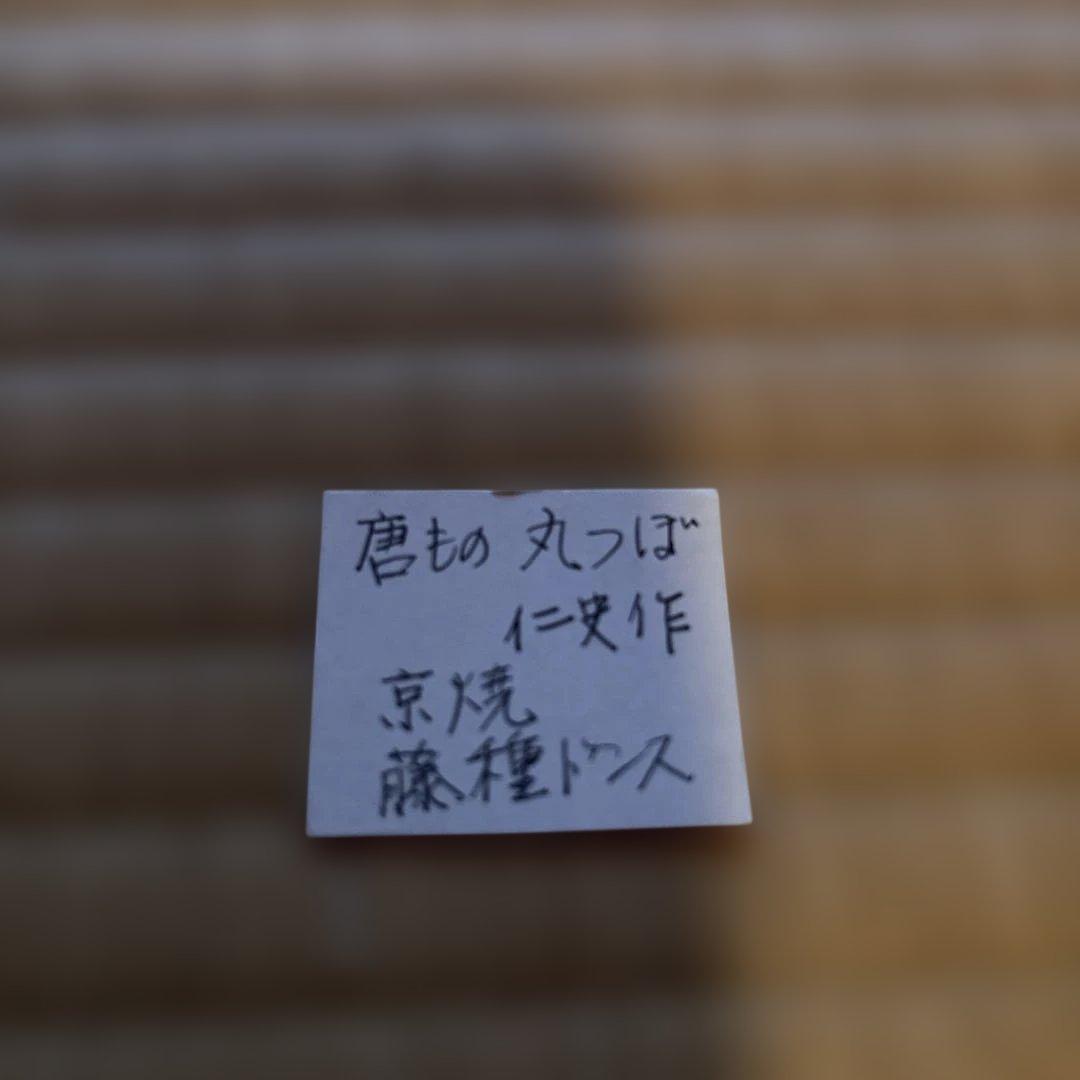 唐もの 丸つぼ
仁史作
京焼
藤種ドンス